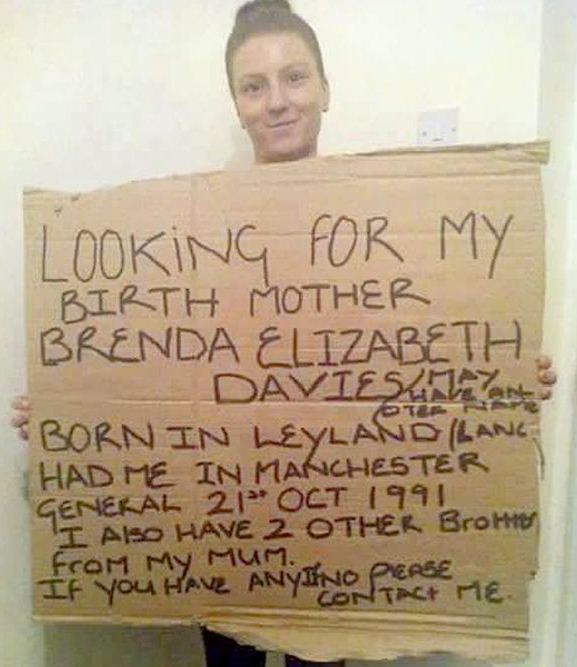 LOOKING FOR MY
BIRTH MOTHER
BRENDA ELIZABETH
DAVIES/MAY
HAVE AN
OTER NAME
BORN IN LEYLAND (LANC
HAD ME IN MANCHESTER
GENERAL 21st OCT 1991
I ALSO HAVE 2 OTHER BrOTHER
FrOM MY MUM.
IF YOU HAVE ANY INFO PLEASE
CONTACT ME.